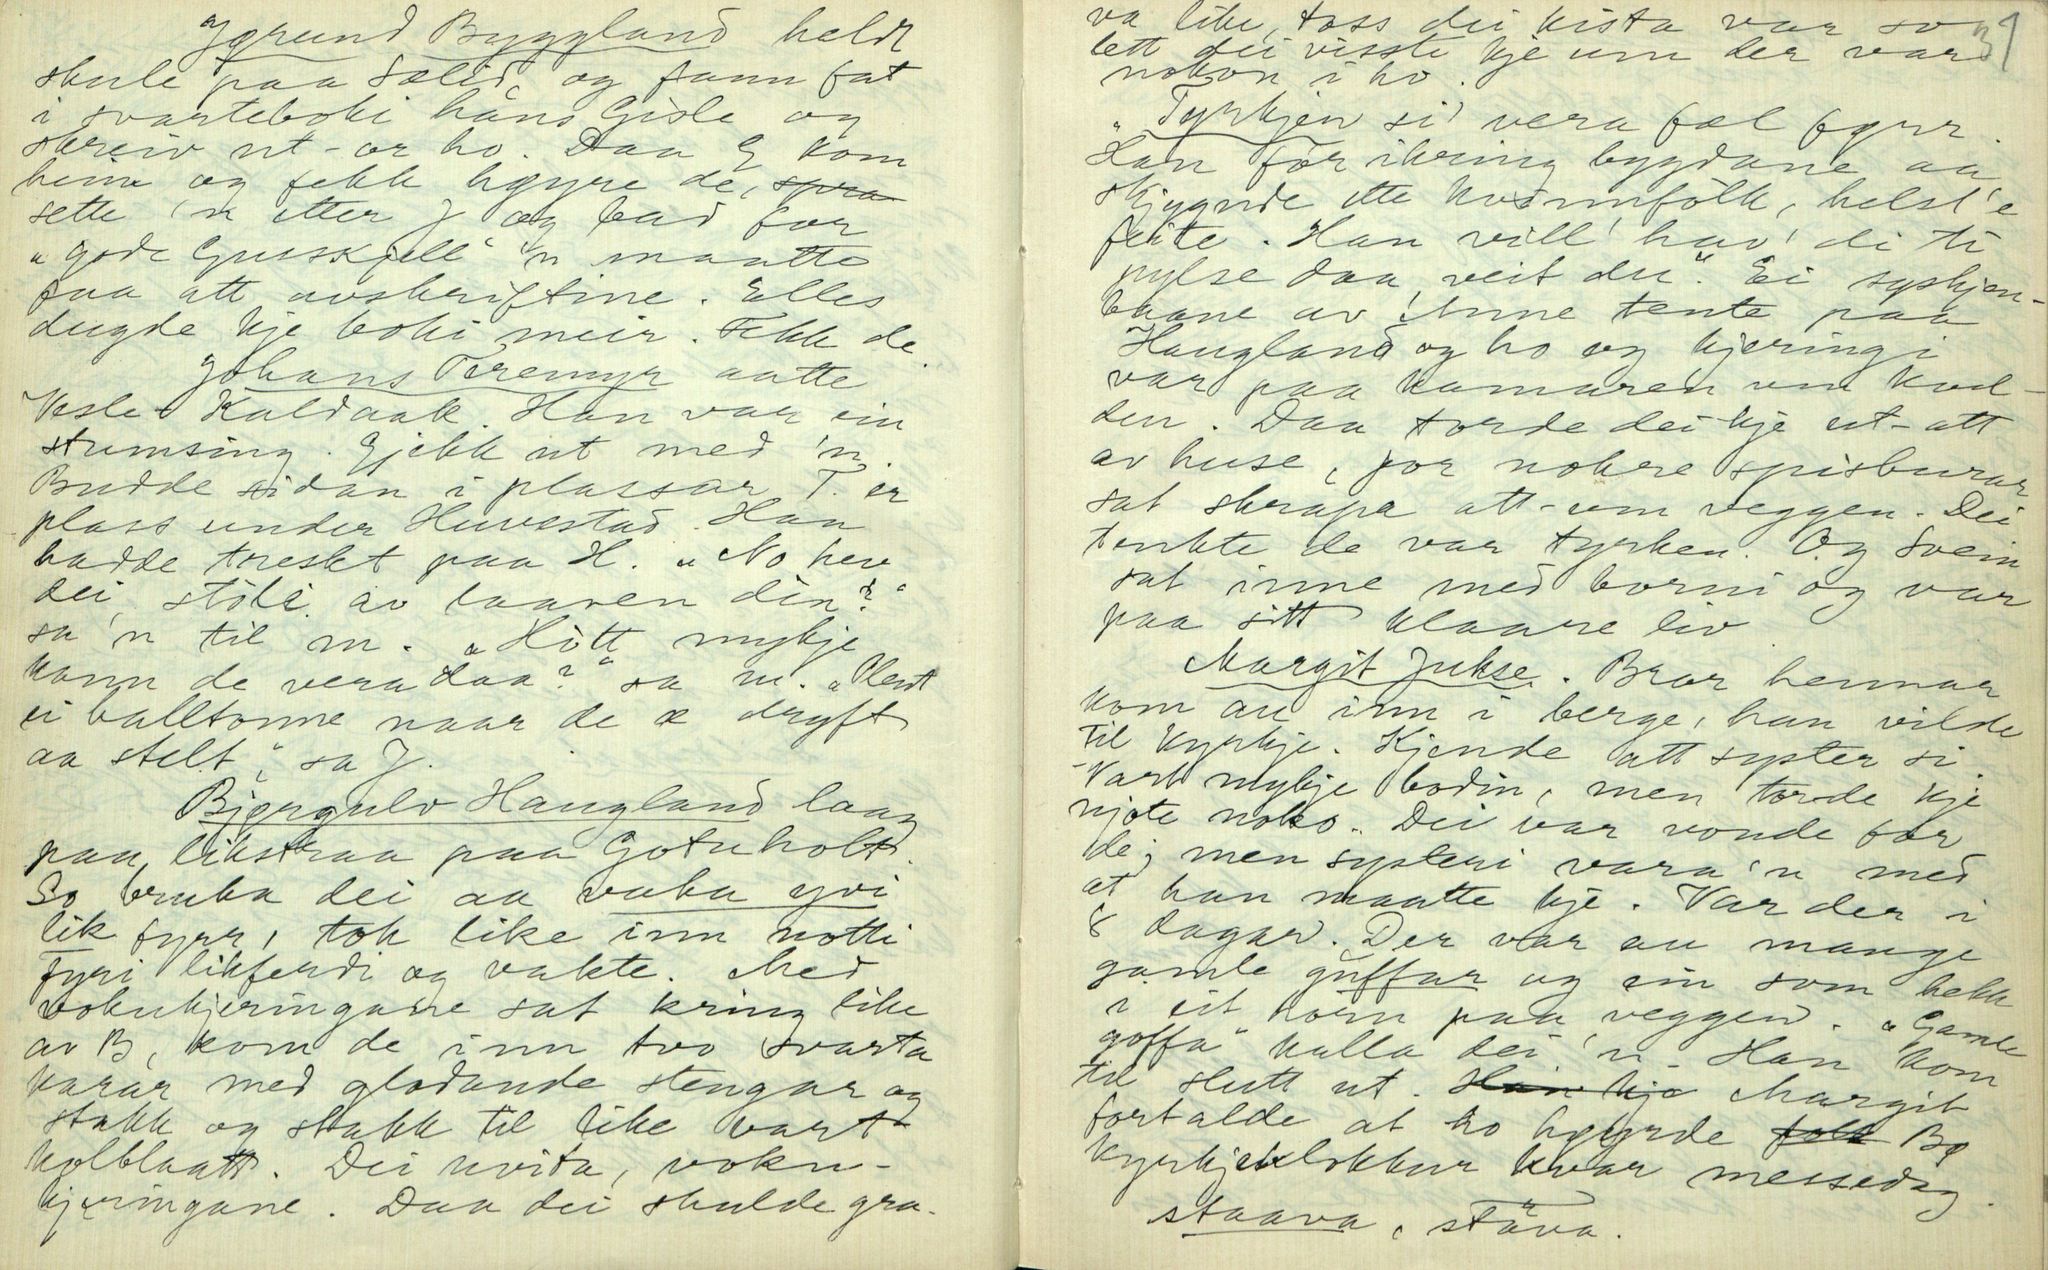 Jørund Byggland heldt
skule paa Sølid og fann fat
i svarteboki hans Gisle og
skreiv ut-or ho. Daa G kom
heim og fekk høyre de, spra
sette 'n etter J og bad for
"gode Gusskjell" 'n maatte
faa att avskriftine. Elles
dugde kje boki meir. Fekk de.
Johans Teremyr aatte
Vesle-Kaldaak. Han var ein
stumsing. Gjekk ut med 'n.
Budde sidan i plassar. T. er
plass under Huvestad. Han
hadde tresket paa H. "No hev
dei stoli av laaven din?"
sa 'n til m. "Hott mykje
kann de vera daa?" sa m. "Vent
ei halltonne naar de æ dryft
aa stelt", sa J.
Bjørgulv Haugland laag
paa likstraa paa Gotuholt.
So bruka dei aa vaka yvi
lik fyrr, tok like inn notti
fyri likferdi og vakte. Med
vokukjeringane sat kring like
av B, kom de inn tvo svarta
karar med glodande stengar og
stakk og stakk til like vart
kolblaatt. Dei uvita, voku-
kjeringane. Daa dei skulde gra-
39
va like, toss dei kista var so
lett dei visste kje um der var
nokon i ho.
"Tyrkjen si' vera fæl fyrr.
Han for ikring bygdane aa
skjygnde ette kvinnfolk, helst 'e
feite. Han vill' hav' di ti
pylse daa, veit du". Ei syskjen-
baane av Anne tente paa
Haugland og ho og kjeringi
var paa kamaren um kvel-
den. Daa torde dei kje ut-att
av huse, for nokre spisburar
sat skrapa att-um veggen. Dei
tenkte de var tyrken. Og Svein
sat inne med borni og var
paa sitt klaare liv
Margit Jukse. Bror hennar
kom au inn i berge, han vilde
til kyrkje. Kjende att syster si.
Vart mykje bodin, men torde kje
njote noko. Dei var vonde for
de; men systeri vara 'n med
at han maatte kje. Var der i
8 dagar. Der var au mange
gamle guffar og ein som hekk
i eit horn paa veggen. "Gamle
goffa" kalla dei 'n. Han kom
til slutt ut. Han kje Margit
fortalde at ho høyrde folk Bø
kyrkjeklokkur kvar messedag.
staava, stäva.